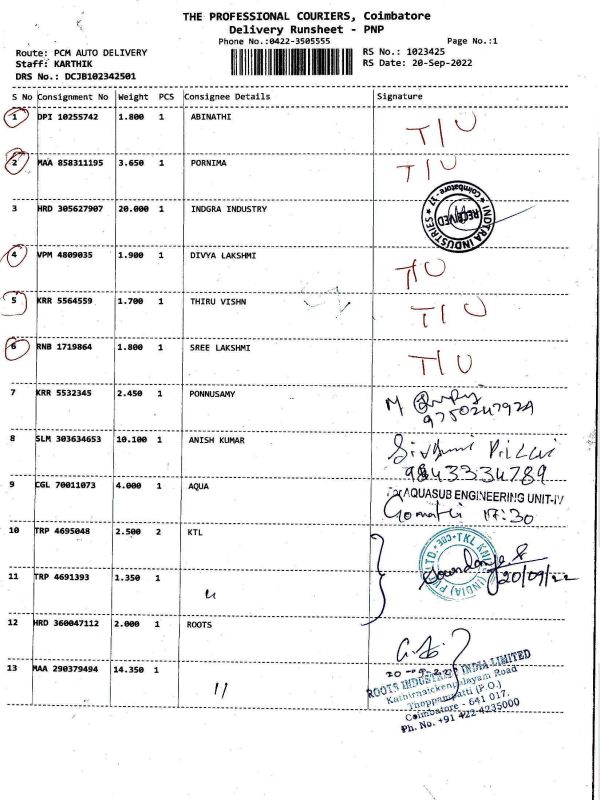 THE PROFESSIONAL COURIERS, Coimbatore
Delivery Runsheet - PNP
Phone No.:0422-3505555
Page No.:1
Route: PCM AUTO DELIVERY
RS No.: 1023425
Staff: KARTHIK
RS Date: 20-Sep-2022
DRS No.: DCJB102342501
S No Consignment No Weight PCS Consignee Details Signature
1 DPI 10255742 1.800 1 ABINATHI T/U
2 MAA 858311195 3.650 1 PORNIMA T/U
3 HRD 305627907 20.000 1 INDGRA INDUSTRY
INDTRA INDUSTRIES ★ Coimbatore - 17 ★
RECEIVED
4 VPM 4809035 1.900 1 DIVYA LAKSHMI T/U
5 KRR 5564559 1.700 1 THIRU VISHN T/U
6 RNB 1719864 1.800 1 SREE LAKSHMI T/U
7 KRR 5532345 2.450 1 PONNUSAMY M
9750247929
8 SLM 303634653 10.100 1 ANISH KUMAR
9843334789
9 CGL 70011073 4.000 1 AQUA
AQUASUB ENGINEERING UNIT-IV
Gomathi 17:30
10 TRP 4695048 2.500 2 KTL
(INDIA) PVT LTD.
20/09/22
11 TRP 4691393 1.350 1 "
12 HRD 360047112 2.000 1 ROOTS
13 MAA 290379494 14.350 1 "
ROOTS INDUSTRIES INDIA LIMITED
Kathirnaickenpalayam Road
Thoppampatti (P.O.)
Coimbatore - 641 017.
Ph. No. +91 422-4235000